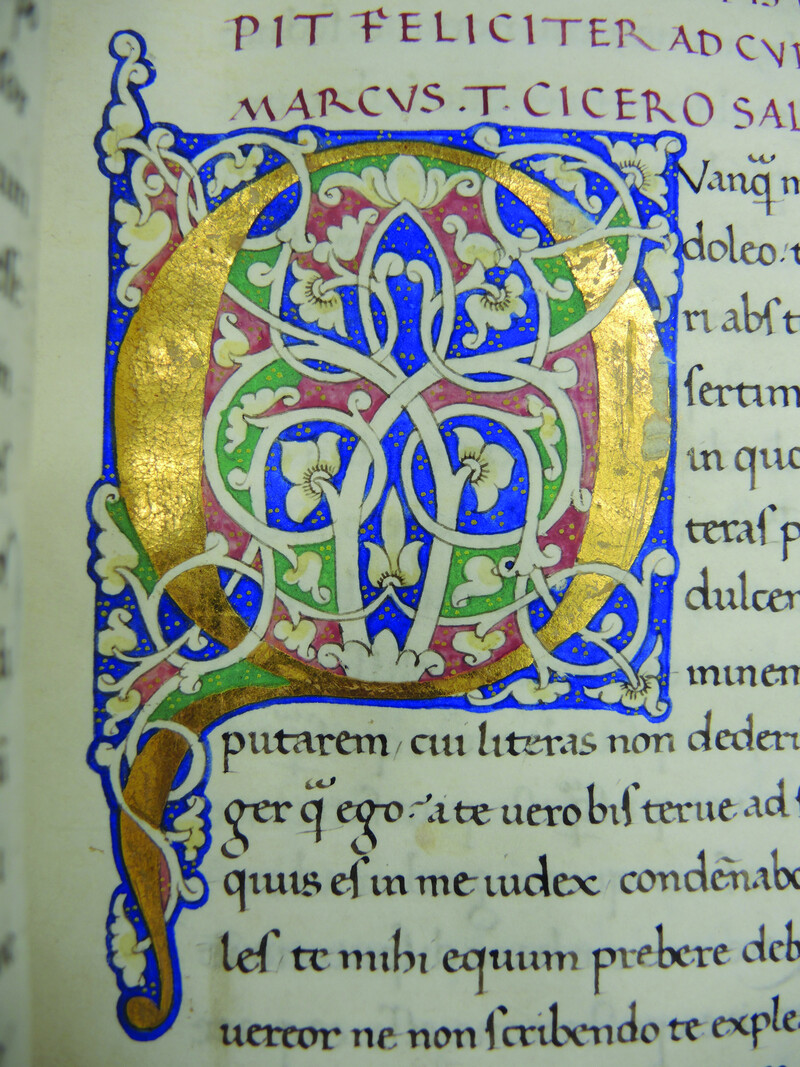 PIT FELICITER AD CVR
MARCVS .T. CICERO SAL
Q
Vanq̃ m
doleo: t
ri abſ t
ſertim
in quo
teraſ p
dulcem
minem
putarem, cui literas non dederi
ger q̃ ego: a te uero biſ terue ad ſ
quiuis eſ in me iudex condeñabo
leſ te mihi equum prebere deb
uereor ne non ſcribendo te exple